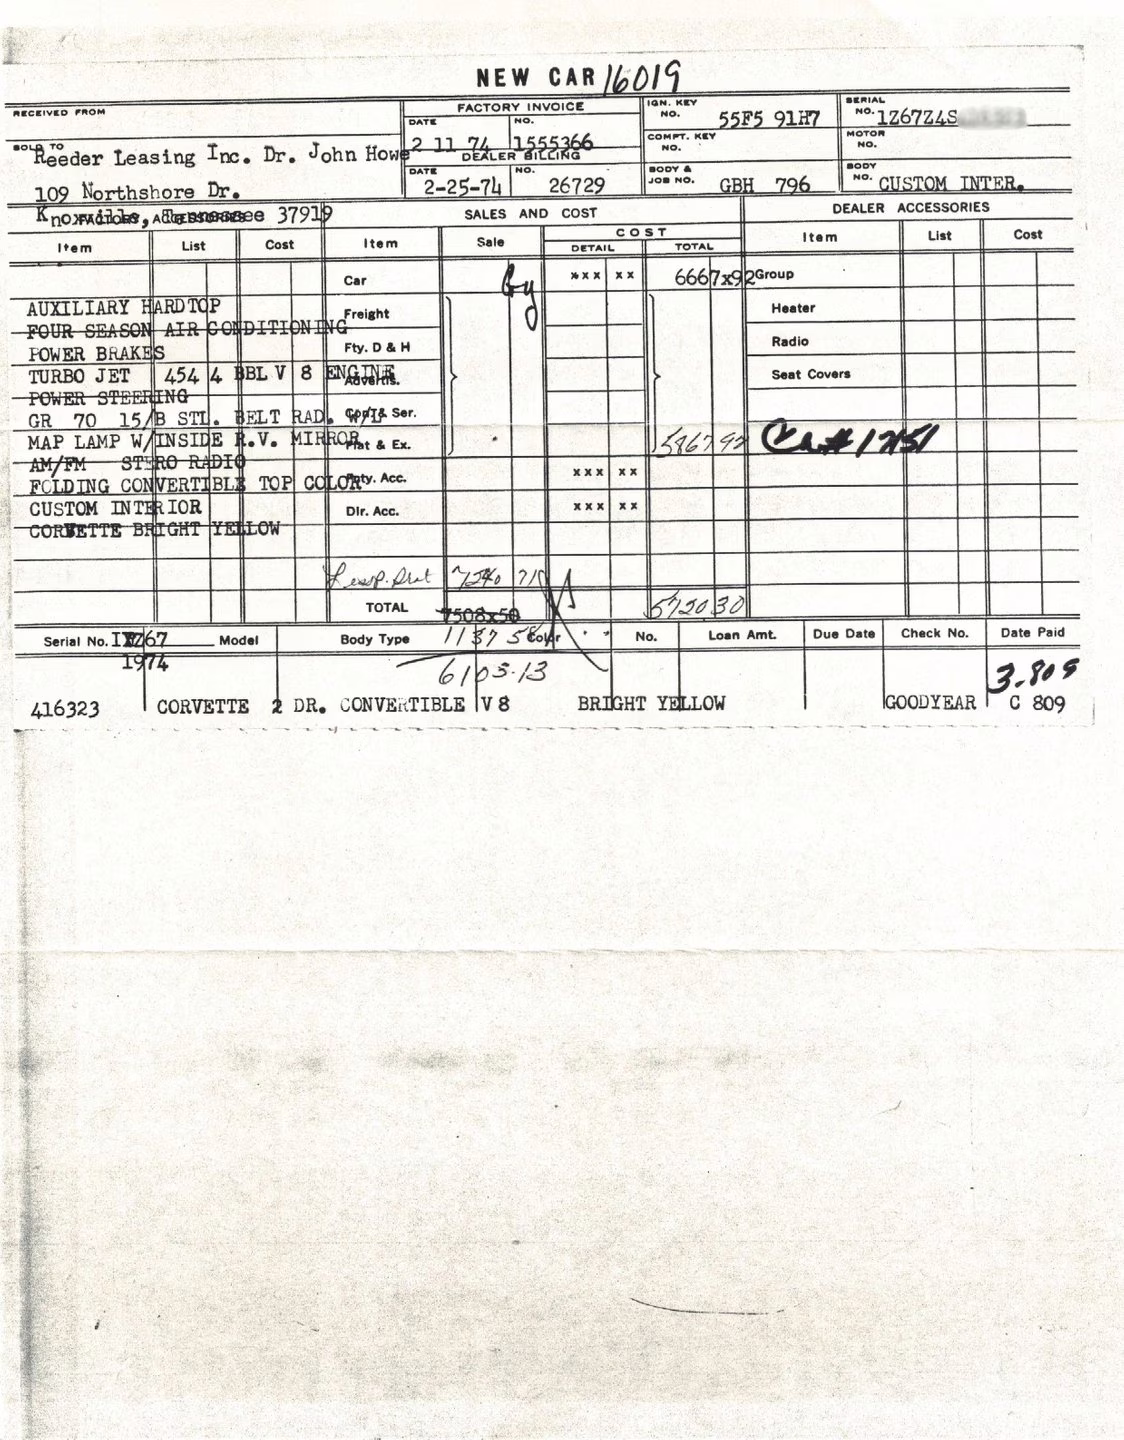 NEW CAR 16019
RECEIVED FROM
FACTORY INVOICE
IGN. KEY NO. 55F5 91H7
SERIAL NO. 1Z67Z4S
DATE 2 11 74 NO. 1555366
COMPT. KEY NO.
MOTOR NO.
SOLD TO Reeder Leasing Inc. Dr. John Howe
DEALER BILLING
109 Northshore Dr.
DATE 2-25-74 NO. 26729
BODY & JOB NO. GBH 796
BODY NO. CUSTOM INTER.
Knoxville, Tennessee 37919
FACTORY ACCESSORIES
SALES AND COST
DEALER ACCESSORIES
Item List Cost Item Sale COST Item List Cost
DETAIL TOTAL
Car xxx xx 6667x92 Group
AUXILIARY HARDTOP
Freight Heater
FOUR SEASON AIR CONDITIONING
POWER BRAKES
Fty. D & H Radio
TURBO JET 454 4 BBL V 8 ENGINE
Advertis. Seat Covers
POWER STEERING
GR 70 15/B STL. BELT RAD. W/L
& Ser.
MAP LAMP W/INSIDE R.V. MIRROR
& Ex. 5867 92
AM/FM STERO RADIO
FOLDING CONVERTIBLE TOP COLOR
Fty. Acc. xxx xx
CUSTOM INTERIOR
Dlr. Acc. xxx xx
CORVETTE BRIGHT YELLOW
TOTAL 7508x50 5720 30
Serial No. 1Z67 Model Body Type 1137 58 Color No. Loan Amt. Due Date Check No. Date Paid
1974 6103.13 3.809
416323 CORVETTE 2 DR. CONVERTIBLE V 8 BRIGHT YELLOW GOODYEAR C 809